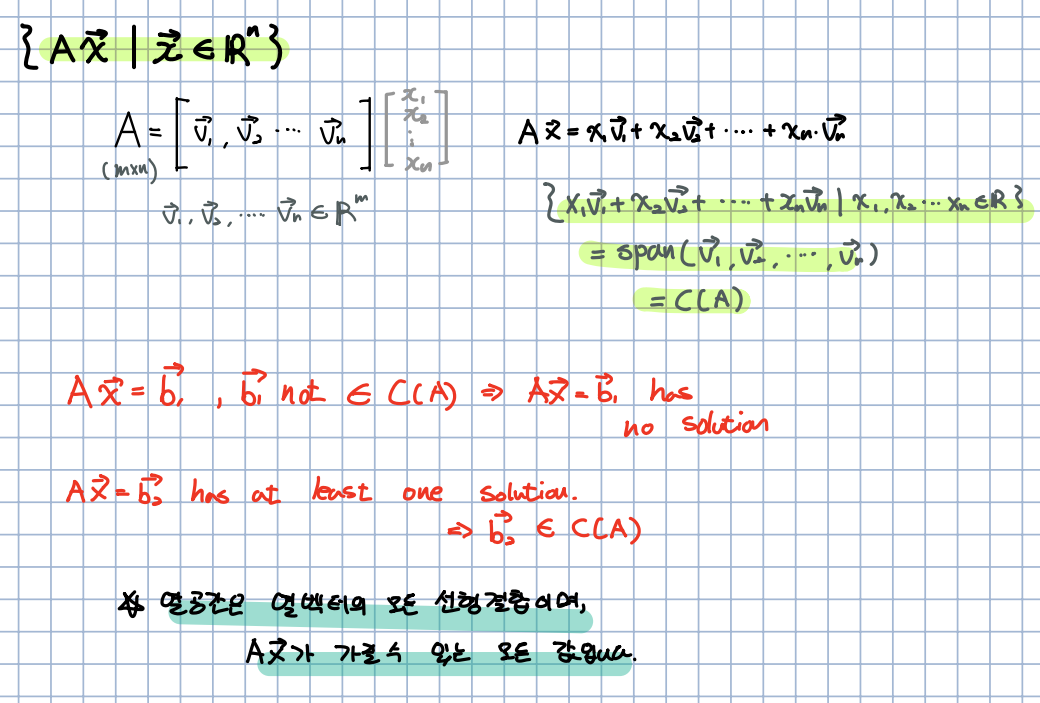 { A x⃗ | x⃗ ∈ ℝⁿ }
A = [ v⃗₁, v⃗₂ ⋯ v⃗ₙ ] [ x₁ x₂ ⋮ xₙ ]
(m×n)
v⃗₁, v⃗₂, ⋯ v⃗ₙ ∈ ℝᵐ
A x⃗ = x₁v⃗₁ + x₂v⃗₂ + ⋯ + xₙ·v⃗ₙ
{ x₁v⃗₁ + x₂v⃗₂ + ⋯ + xₙv⃗ₙ | x₁, x₂ ⋯ xₙ ∈ ℝ }
= span( v⃗₁, v⃗₂, ⋯, v⃗ₙ )
= C(A)
A x⃗ = b⃗₁ , b⃗₁ not ∈ C(A) ⇒ A x⃗ = b⃗₁ has
no solution
A x⃗ = b⃗₂ has at least one solution.
⇒ b⃗₂ ∈ C(A)
☆ 열공간은 열벡터의 모든 선형결합이며,
A x⃗가 가질 수 있는 모든 값입니다.